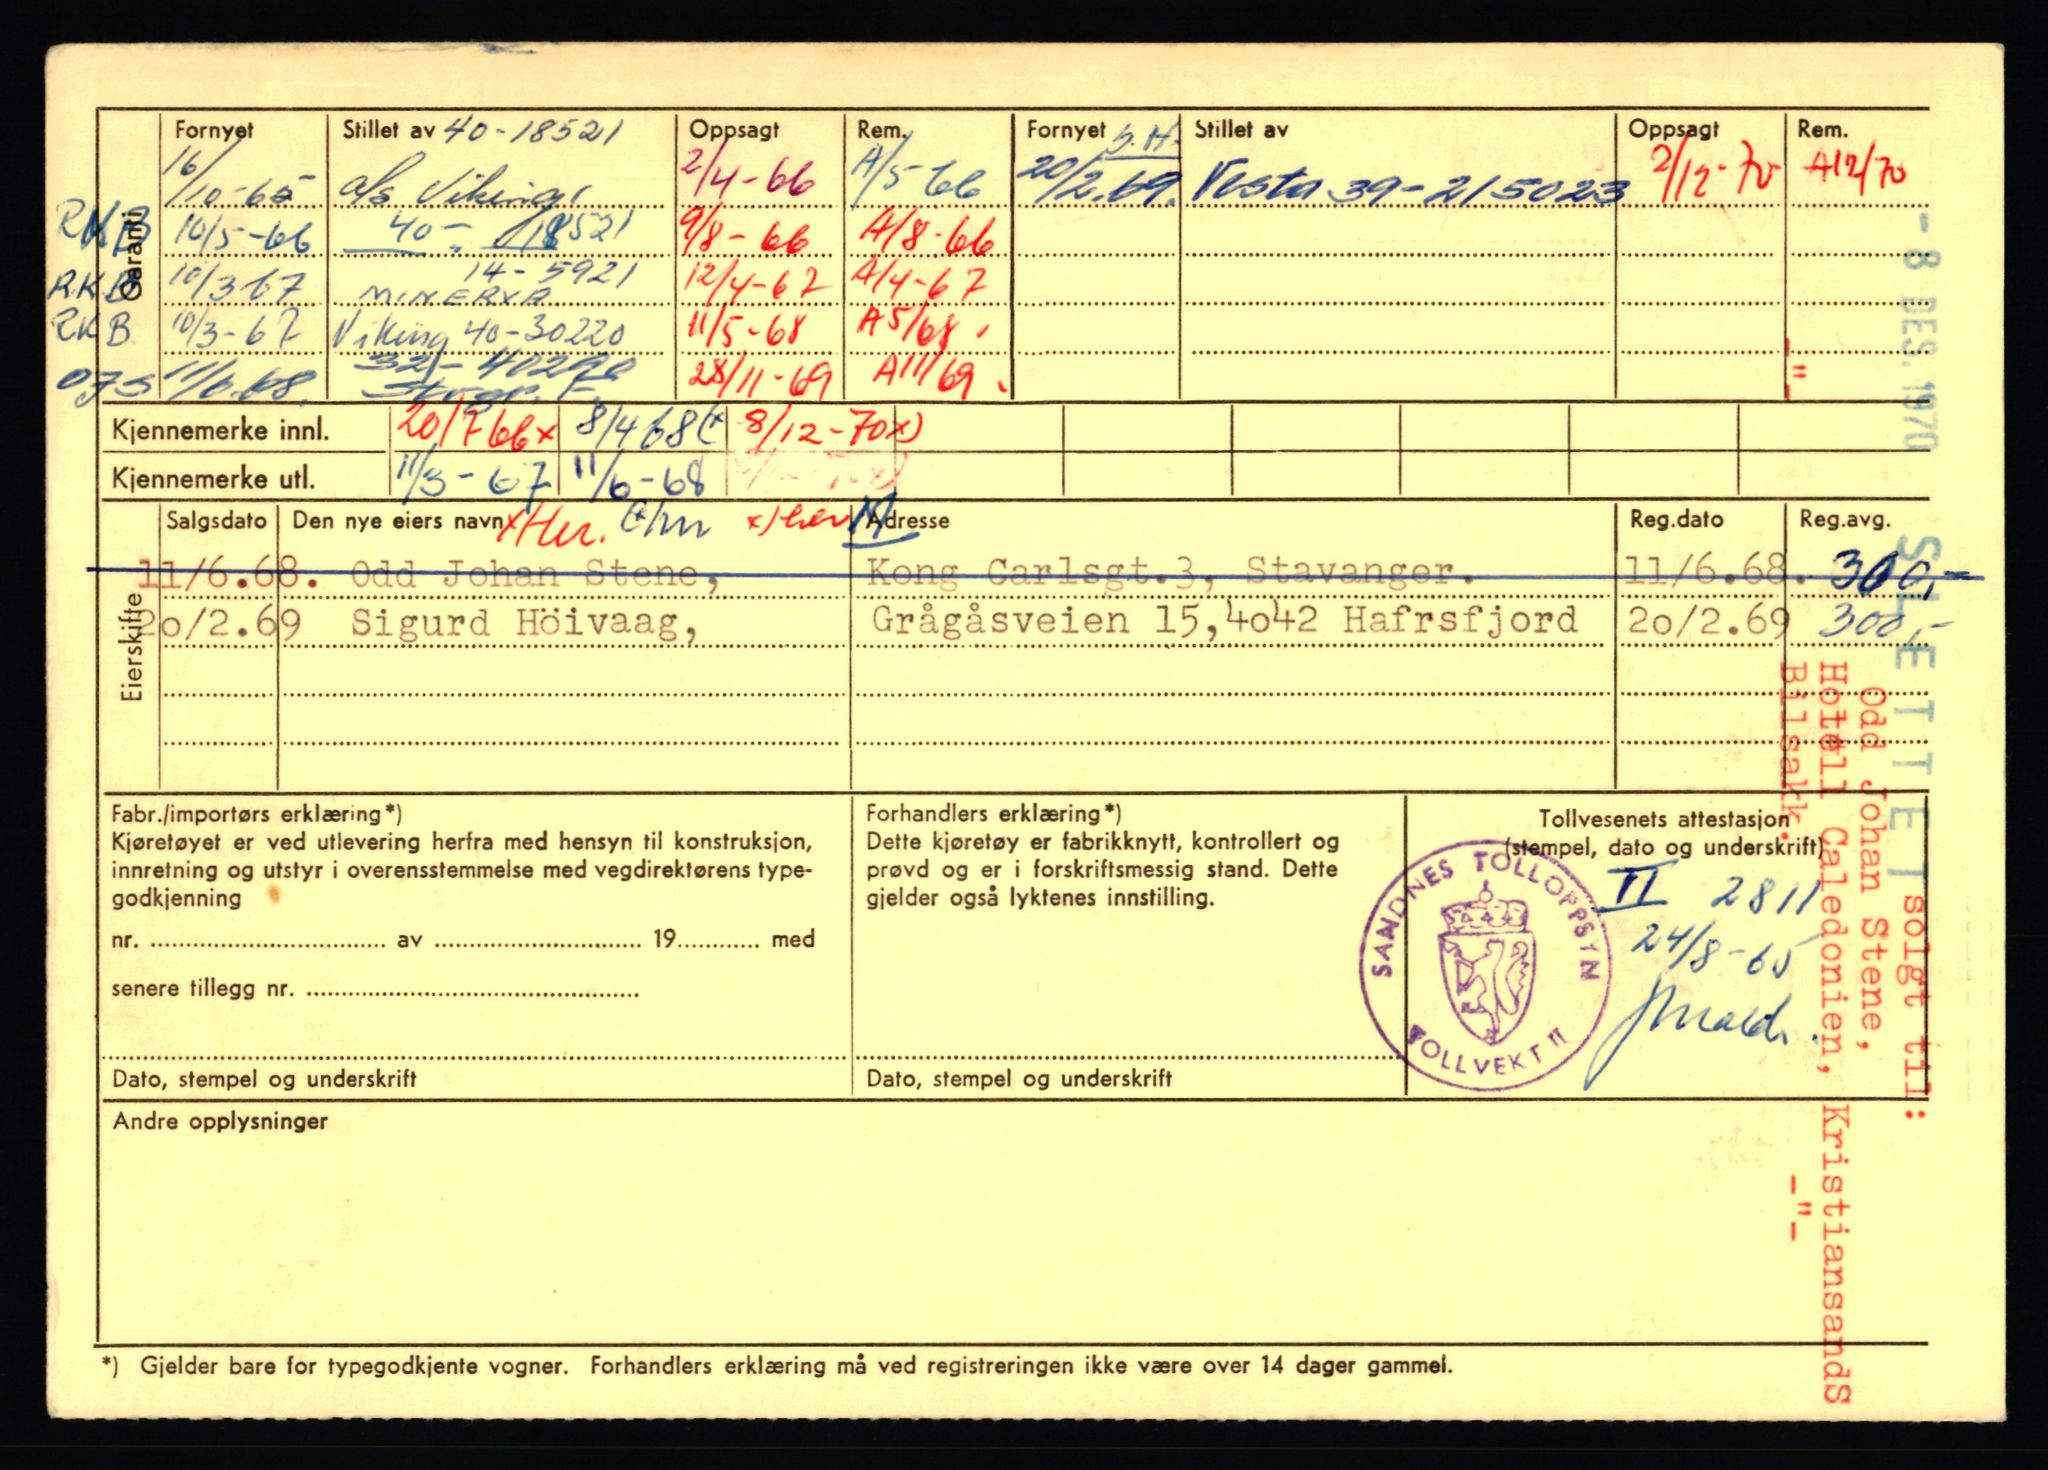 Garanti
Fornyet Stillet av 40-18521 Oppsagt Rem. Fornyet Stillet av Oppsagt Rem.
16/10-65 a/s Viking 2/4-66 A/5-66 20/2.69. Vesta 39-215023 2/12-70 A12/70
RKB 10/5-66 40-18521 9/8-66 A/8-66
RKB 10/3 67 14-5921 MINERVA 12/4-67 A/4-67
RKB 10/3-67 Viking 40-30220 11/5-68 A5/68
OJS 11/6.68. 32-40290 28/11-69 A11/69
Kjennemerke innl. 20/7 66x 8/4 68(x 8/12-70x)
Kjennemerke utl. 11/3-67 11/6-68
Eierskifte
Salgsdato Den nye eiers navn Adresse Reg.dato Reg.avg.
11/6.68. Odd Johan Stene, Kong Carlsgt.3, Stavanger. 11/6.68. 300,-
20/2.69 Sigurd Höivaag, Grågåsveien 15,4042 Hafrsfjord 20/2.69 300,-
Fabr./importørs erklæring*)
Kjøretøyet er ved utlevering herfra med hensyn til konstruksjon,
innretning og utstyr i overensstemmelse med vegdirektørens type-
godkjenning
nr. av 19 med
senere tillegg nr.
Dato, stempel og underskrift
Forhandlers erklæring*)
Dette kjøretøy er fabrikknytt, kontrollert og
prøvd og er i forskriftsmessig stand. Dette
gjelder også lyktenes innstilling.
Dato, stempel og underskrift
Tollvesenets attestasjon
(stempel, dato og underskrift)
II 2811
24/8-65
SANDNES TOLLOPPSYN
TOLLVEKT II
Andre opplysninger
*) Gjelder bare for typegodkjente vogner. Forhandlers erklæring må ved registreringen ikke være over 14 dager gammel.
-8 DES. 1970
SLETTET
solgt til:
Odd Johan Stene,
Hotell Caledonien, KristiansandS
Bilsakk.
-"-
-"-